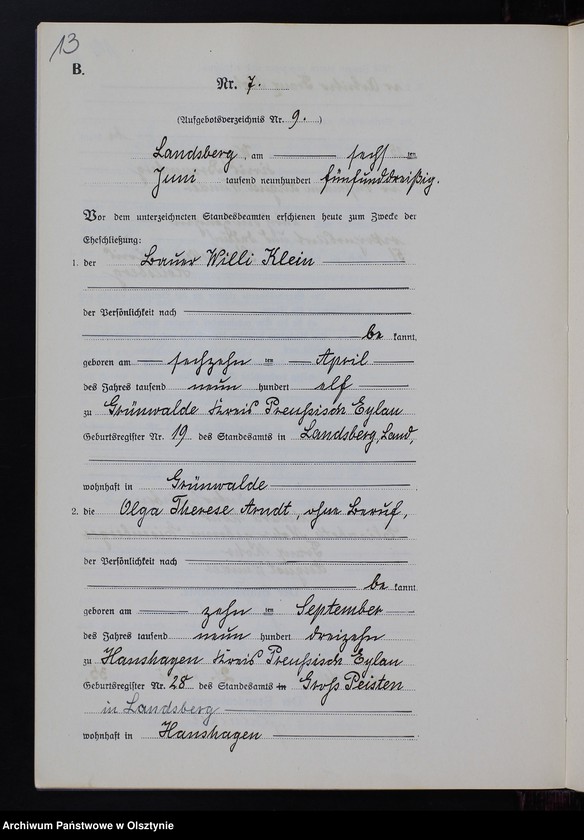 13
B.
Nr. 7.
(Aufgebotsverzeichnis Nr. 9.)
Landsberg, am sechs ten
Juni tausend neunhundert fünfunddreißig.
Vor dem unterzeichneten Standesbeamten erschienen heute zum Zwecke der
Eheschließung:
1. der Bauer Willi Klein
der Persönlichkeit nach
be kannt,
geboren am sechzehn ten April
des Jahres tausend neun hundert elf
zu Grünwalde Kreis Preußisch Eylau
Geburtsregister Nr. 19 des Standesamts in Landsberg, Land,
wohnhaft in Grünwalde
2. die Olga Therese Arndt, ohne Beruf,
der Persönlichkeit nach
be kannt,
geboren am zehn ten September
des Jahres tausend neun hundert dreizehn
zu Hanshagen Kreis Preußisch Eylau
Geburtsregister Nr. 28 des Standesamts in Groß Peisten
in Landsberg
wohnhaft in Hanshagen
Archiwum Państwowe w Olsztynie